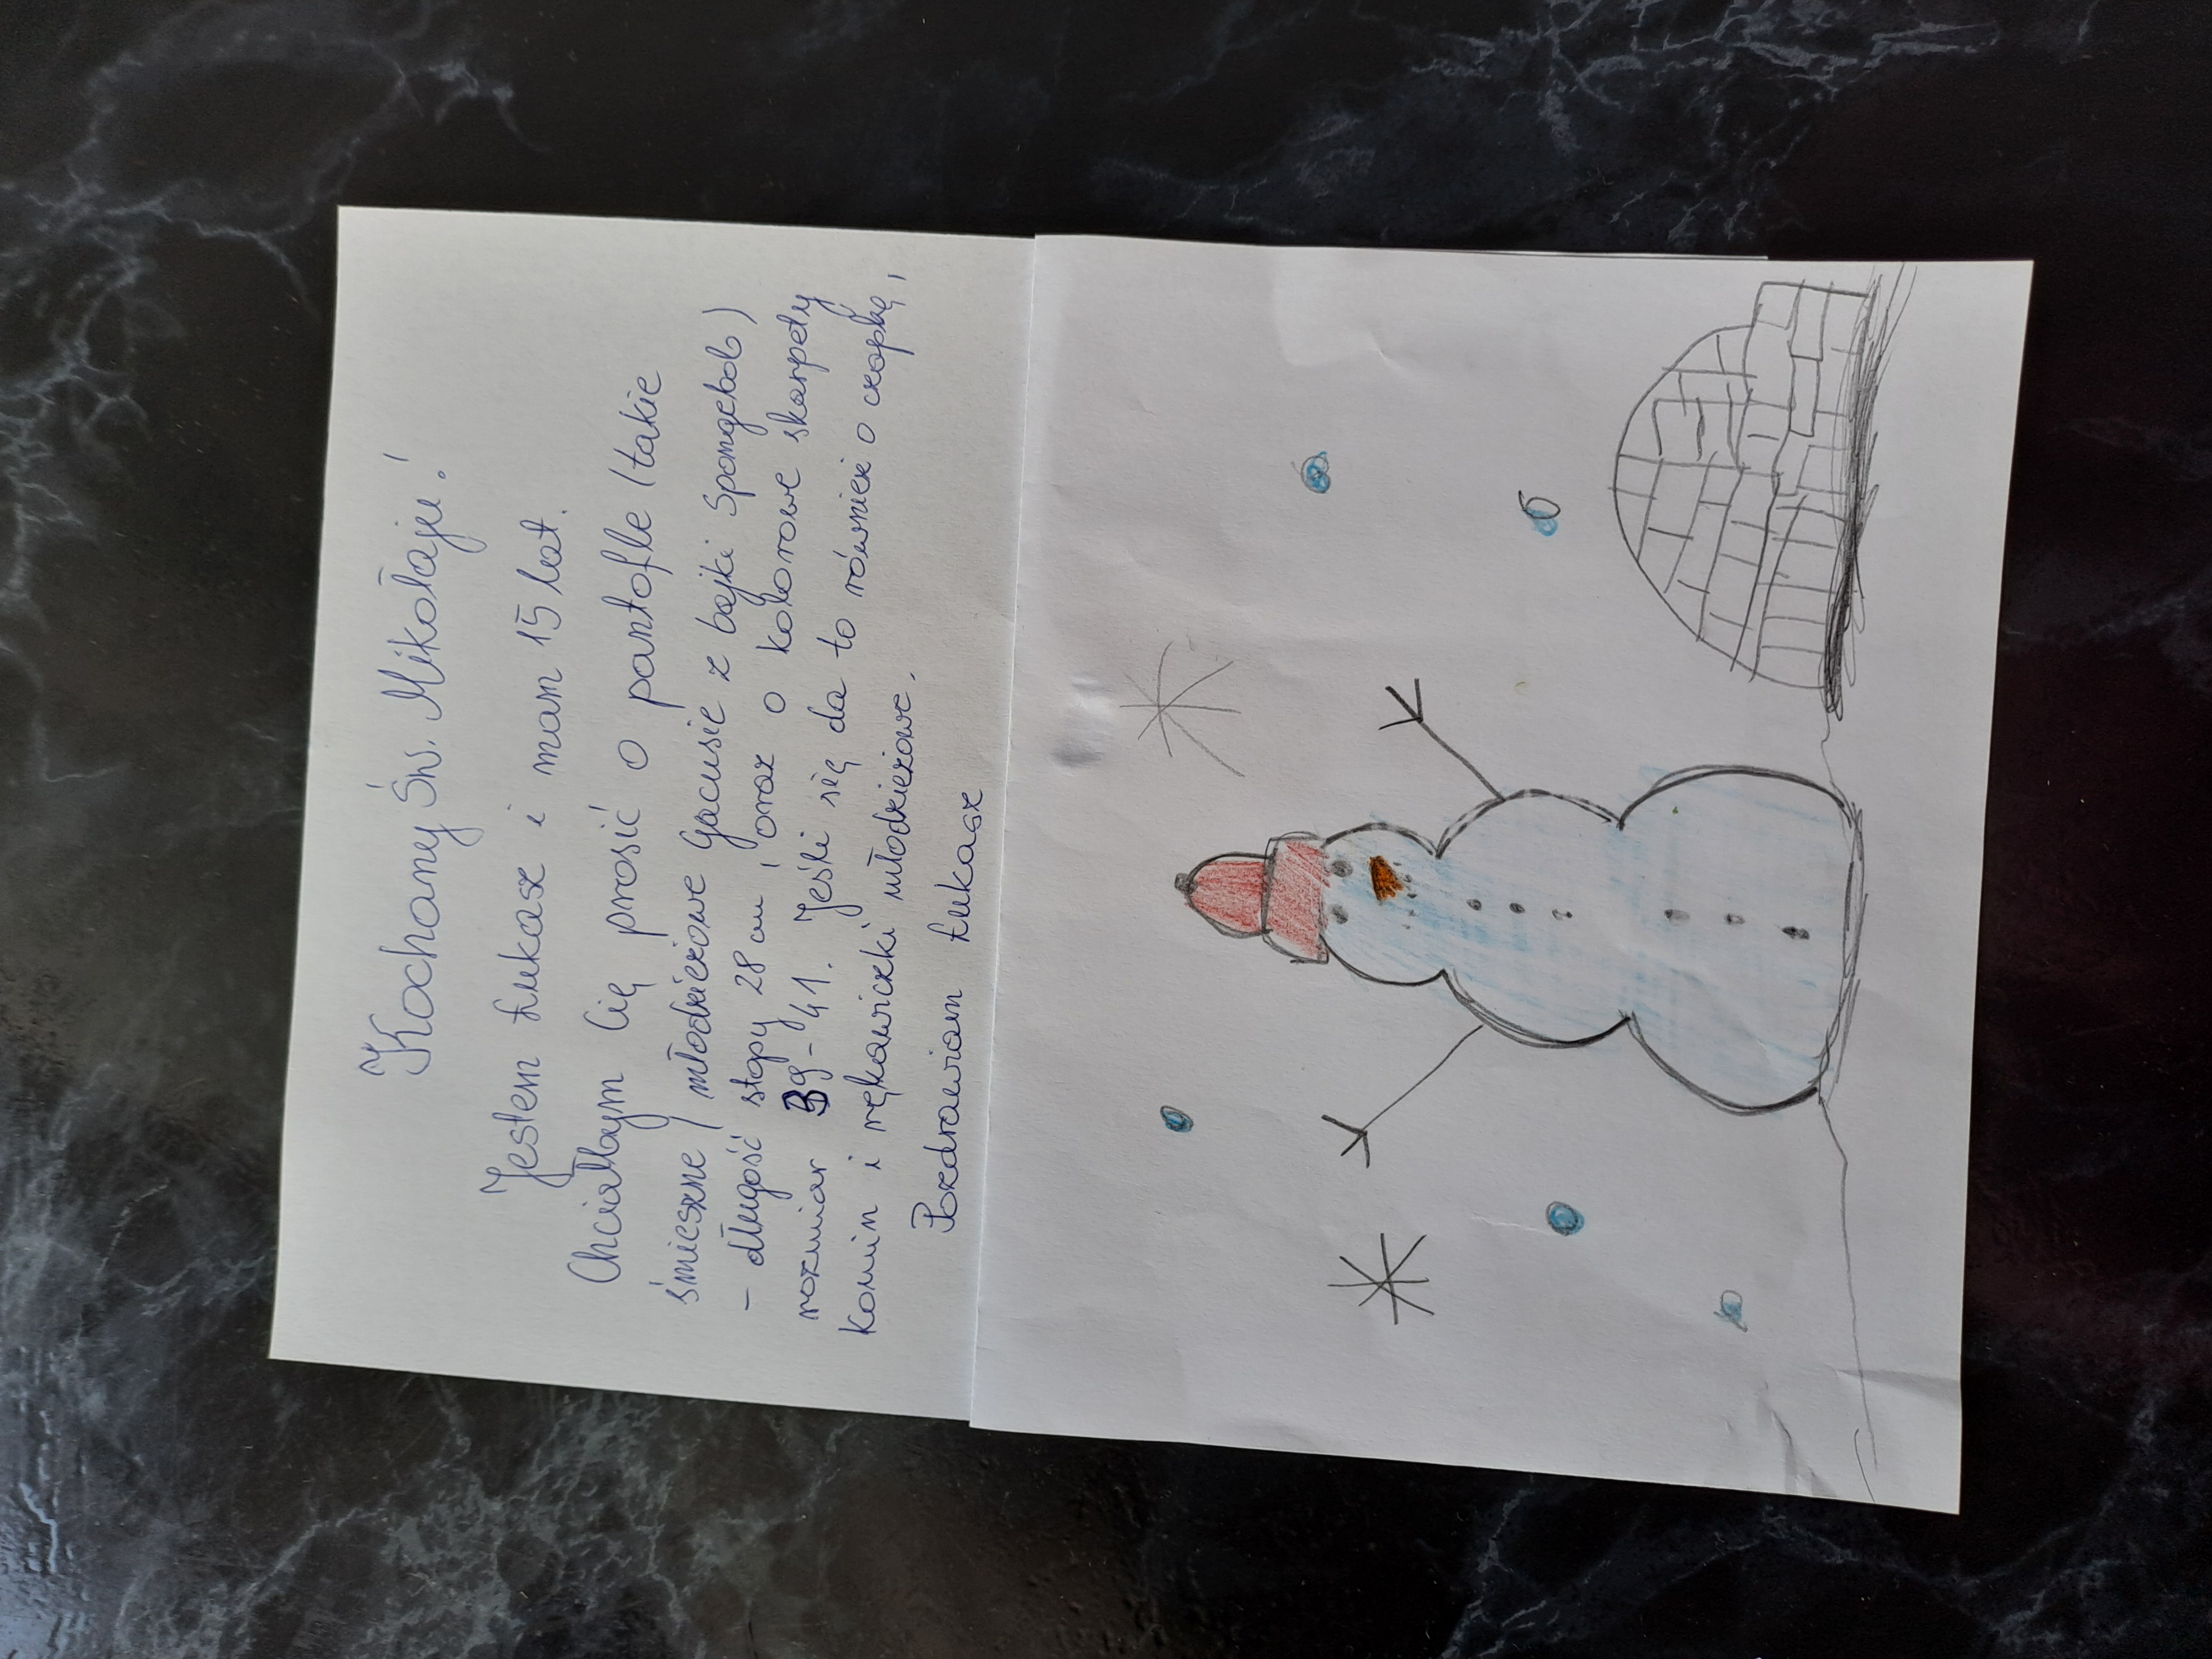 Kochany Św. Mikołaju!
Jestem Łukasz i mam 15 lat.
Chciałbym Cię prosić o pantofle (takie
śmieszne / młodzieżowe Gacusie z bajki Spongebob)
- długość stopy 28 cm, oraz o kolorowe skarpety
rozmiar 39-41. Jeśli się da to również o czapkę,
komin i rękawiczki młodzieżowe.
Pozdrawiam Łukasz